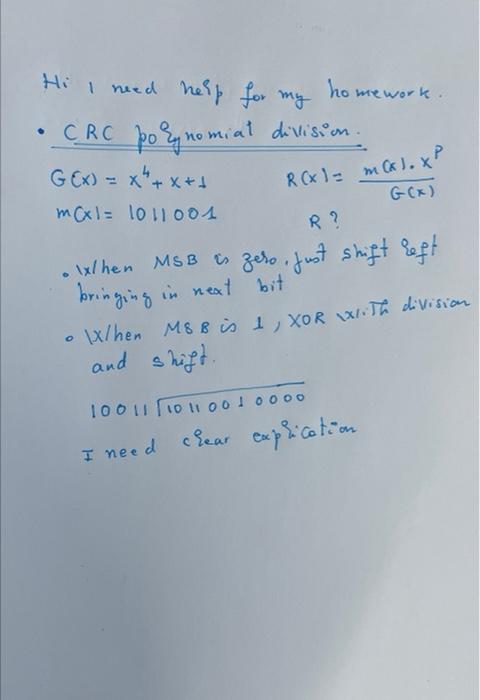 Hi I need help for my homework.
• CRC polynomial division.
G(x) = x⁴ + x + 1 R(x) = m(x). x^p / G(x)
m(x) = 1011001 R?
• When MSB is zero, just shift left
bringing in next bit
• When MSB is 1, XOR with division
and shift.
10011 | 10110010000
I need clear explication